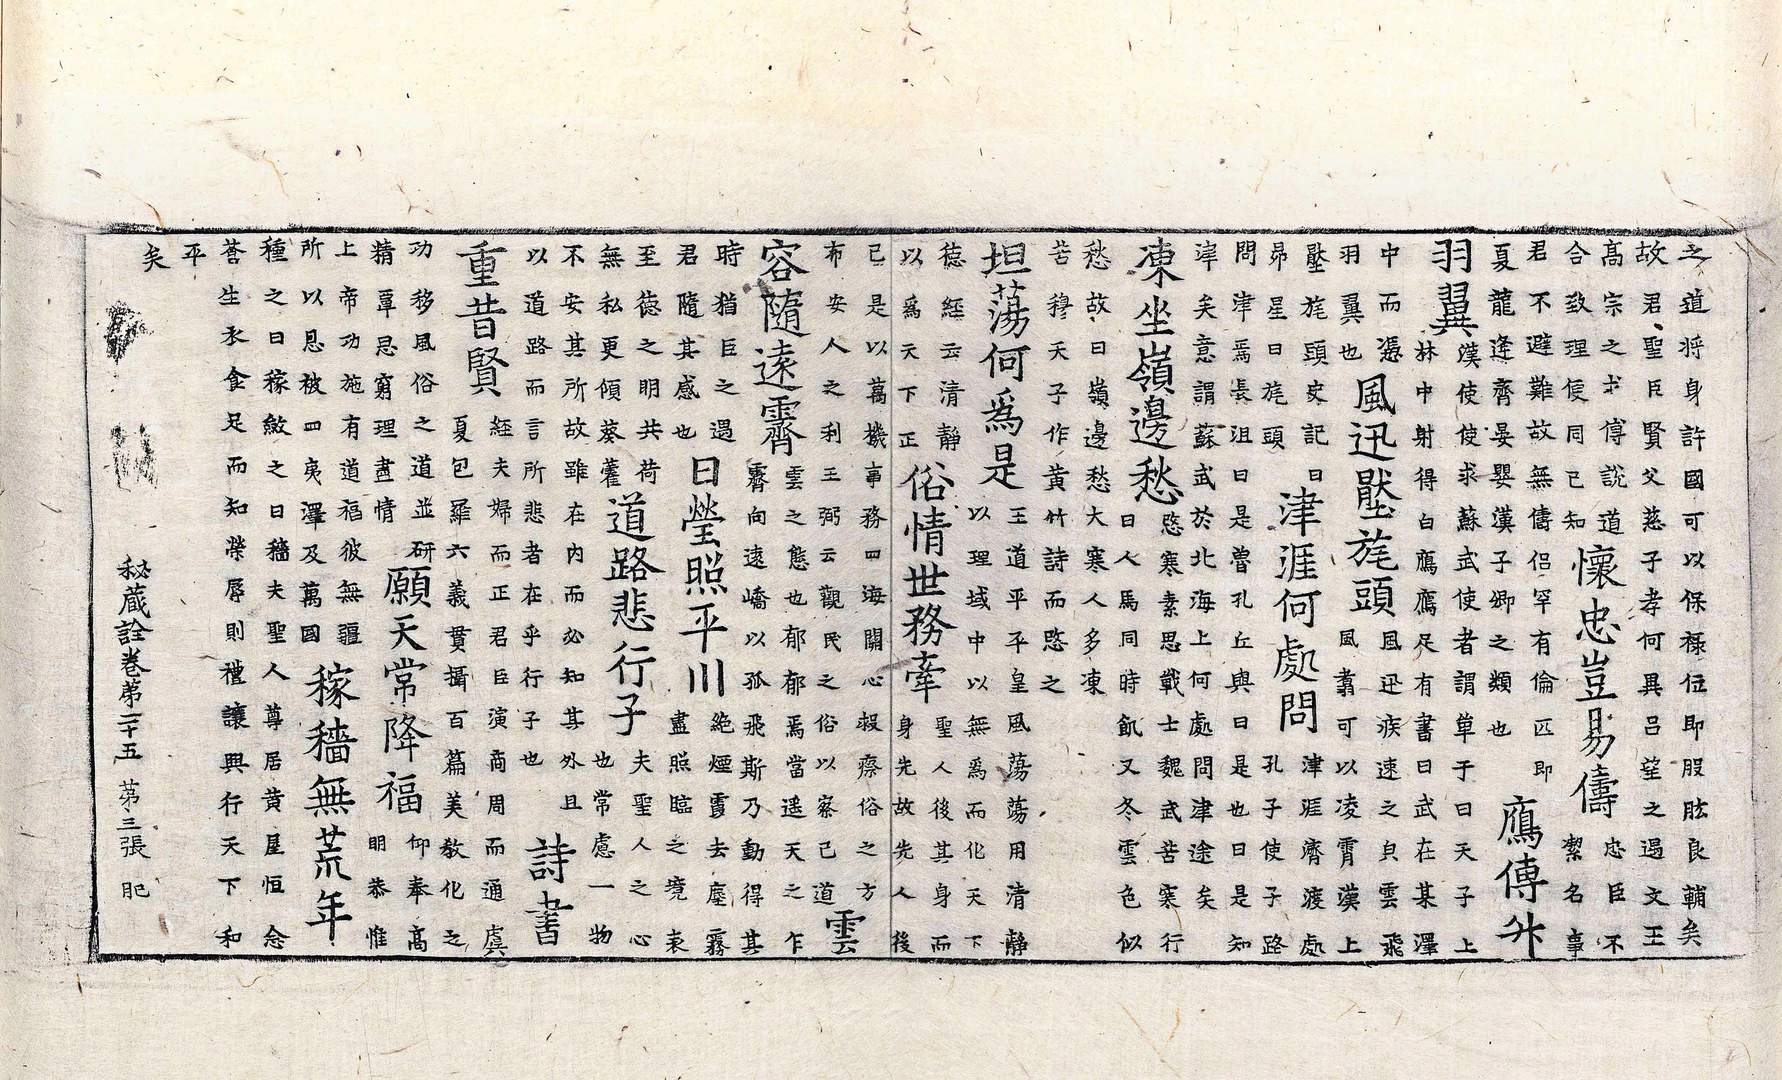 之道將身許國可以保祿位即股肱良輔矣
故君聖臣賢父慈子孝何異呂望之遇文王
高宗之求傅說道
合致理使同己知
懷忠豈易儔
忠臣不
潔名事
君不避難故無儔侶罕有倫匹即
夏龍逄齊晏嬰漢子卿之類也
鷹傳升
羽翼
漢使使求蘇武使者謂單于曰天子上
林中射得白鷹鷹足有書曰武在某澤
中而憑
羽翼也
風迅壓旄頭
風迅疾速之皃雲飛
風翥可以凌霄漢上
壓旄頭史記曰
昴星曰旄頭
津涯何處問
津涯濟渡處
孔子使子路
問津焉長沮曰是魯孔丘與曰是也曰是知
津矣意謂蘇武於北海上何處問津途矣
凍坐嶺邊愁
愍寒素思戰士魏武苦寒行
曰人馬同時飢又冬雲色似
愁故曰嶺邊愁大寒人多凍
苦穆天子作黃竹詩而愍之
坦蕩何爲是
王道平平皇風蕩蕩用清靜
以理域中以無爲而化天下
德經云清靜
以爲天下正
俗情世務牽
聖人後其身而
身先故先人後
己是以萬機事務四海關心救療俗之方
布安人之利王弼云觀民之俗以察己道
雲
容隨遠霽
雲之態也郁郁焉當遥天之乍
霽向遠嶠以孤飛斯乃動得其
時猶臣之遇
君隨其感也
日瑩照平川
絶煙雲去塵霧
盡照臨之境表
至德之明共荷
無私更傾葵藿
道路悲行子
夫聖人之心
也常慮一物
不安其所故雖在內而必知其外且
以道路而言所悲者在乎行子也
詩書
重昔賢
經夫婦而正君臣演商周而通虞
夏包羅六義貫攝百篇美教化之
功移風俗之道並研
精覃思窮理盡情
願天常降福
仰奉高
明恭惟
上帝功施有道福彼無疆
所以恩被四夷澤及萬國
稼穡無荒年
種之曰稼斂之曰穡夫聖人尊居黃屋恒念
蒼生衣食足而知榮辱則禮讓興行天下和
平
矣
秘藏詮卷第二十五 第三張 肥